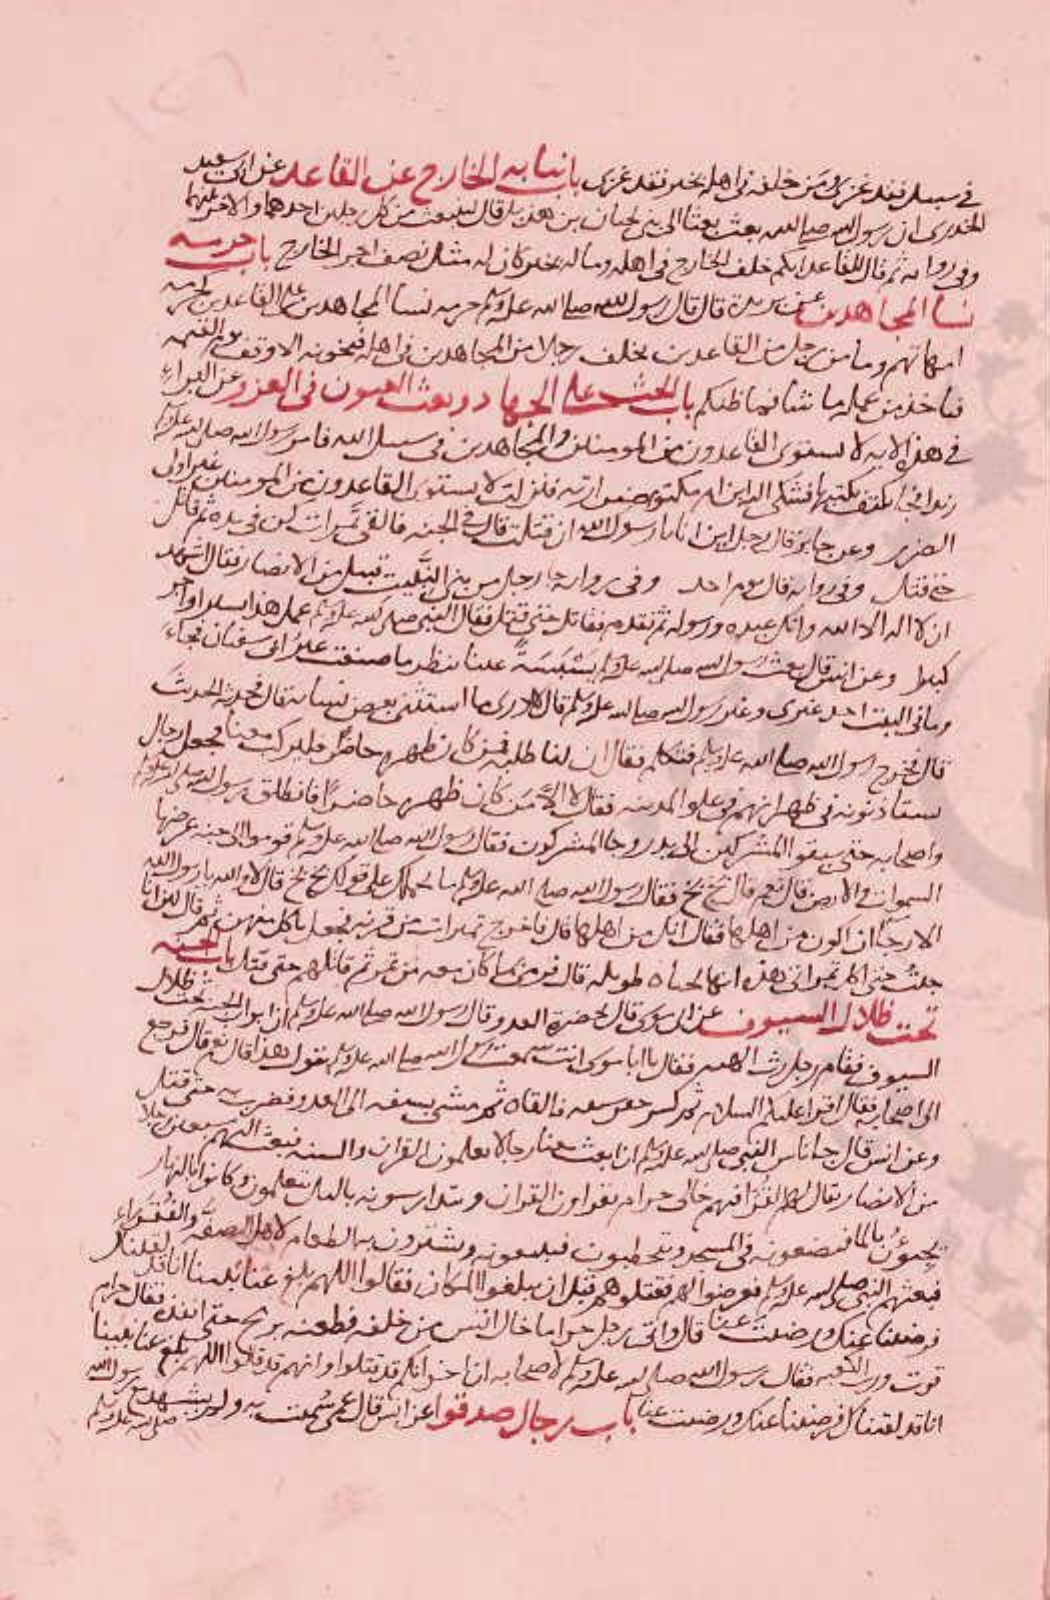 في سبيل فقد غزى ومن خلفه في اهله بخير فقد غزى باب نيابه الخارج عن القاعد عن ابي سعيد
الخدري ان رسول الله صلى الله بعث بعثا الى بني لحيان بن هذيل قال لينبعث من كل رجلين احدهما والاجر بينهما
وفي روايه ثم قال للقاعد ايكم خلف الخارج في اهله وماله بخير كان له مثل نصف اجر الخارج باب حرمه
نسا المجاهدين عن بريدة قال قال رسول الله صلى الله عليه وسلم حرمه نسا المجاهدين على القاعدين كحرمه
امهاتهم وما من رجل من القاعدين يخلف رجلا من المجاهدين في اهله فيخونه الا وقف يوم القيمه
فياخذ من عمله ما شا فما ظنكم باب الحث على الجهاد وبعث العيون في الغزو عن البراء
في هذه الايه لا يستوى القاعدون من المومنين والمجاهدين في سبيل الله فامر رسول الله صلى الله عليه وسلم
زيدا فجا بكتف يكتبها فشكى اليه ابن ام مكتوم ضرارته فنزلت لا يستوى القاعدون من المومنين غير اولى
الضرر وعن جابر قال رجل اين انا يا رسول الله ان قتلت قال في الجنه فالقى تميرات كن في يده ثم قاتل
حتى قتل وفي روايه قال يوم احد وفي روايه جا رجل من بني النبيت قبيل من الانصار فقال اشهد
ان لا اله الا الله وانك عبده ورسوله ثم تقدم فقاتل حتى قتل فقال النبي صلى الله عليه وسلم عمل هذا يسيرا واجر
كثيرا وعن انس قال بعث رسول الله صلى الله عليه وسلم بسبسة عينا ينظر ما صنعت عير ابي سفيان فجاء
وما في البيت احد غيرى وغير رسول الله صلى الله عليه وسلم قال لا ادرى ما استثنى بعض نسايه قال فحدثه الحديث
قال فخرج رسول الله صلى الله عليه وسلم فتكلم فقال ان لنا طلبه فمن كان ظهره حاضرا فليركب معنا فجعل رجال
يستاذنونه في ظهرانهم في علو المدينه فقال لا الا من كان ظهره حاضرا فانطلق رسول الله صلى الله عليه وسلم
واصحابه حتى سبقوا المشركين الى بدر وجا المشركون فقال رسول الله صلى الله عليه وسلم قوموا الى جنه عرضها
السموات والارض قال نعم قال بخ بخ فقال رسول الله صلى الله عليه وسلم ما يحملك على قولك بخ بخ قال لا والله يا رسول الله
الا رجا ان اكون من اهلها فقال انك من اهلها قال فاخرج تميرات من قرنه فجعل ياكل منهن ثم قال لئن انا
حييت حتى اكل تمراتي هذه انها لحياه طويله قال فرمى بما كان معه من تمر ثم قاتلهم حتى قتل باب الجنه
تحت ظلال السيوف عن ابي موسى قال بحضرة العدو قال رسول الله صلى الله عليه وسلم ان ابواب الجنه تحت ظلال
السيوف فقام رجل رث الهيئه فقال يا ابا موسى انت سمعت رسول الله صلى الله عليه وسلم يقول هذا قال نعم قال فرجع
الى اصحابه فقال اقرا عليكم السلام ثم كسر جفن سيفه فالقاه ثم مشى بسيفه الى العدو فضرب به حتى قتل
وعن انس قال جا ناس الى النبي صلى الله عليه وسلم ان ابعث معنا رجالا يعلمون القران والسنه فبعث اليهم سبعين رجلا
من الانصار يقال لهم القرا فيهم خالي حرام يقراون القران ويتدارسونه بالليل يتعلمون وكانوا بالنهار
يجيؤن بالما فيضعونه في المسجد ويحتطبون فيبيعونه ويشترون به الطعام لاهل الصفه والفقراء
فبعثهم النبي صلى الله عليه وسلم فعرضوا لهم فقتلوهم قبل ان يبلغوا المكان فقالوا اللهم بلغ عنا نبينا انا قد لقيناك
فرضينا عنك ورضيت عنا قال واتى رجل حراما خال انس من خلفه فطعنه برمح حتى انفذه فقال حرام
فزت ورب الكعبه فقال رسول الله صلى الله عليه وسلم لاصحابه ان اخوانكم قد قتلوا وانهم قد قالوا اللهم بلغ عنا نبينا
انا قد لقيناك فرضينا عنك ورضيت عنا باب رجال صدقوا عن انس قال عمى سميت به ولم يشهد مع رسول الله صلى الله عليه وسلم